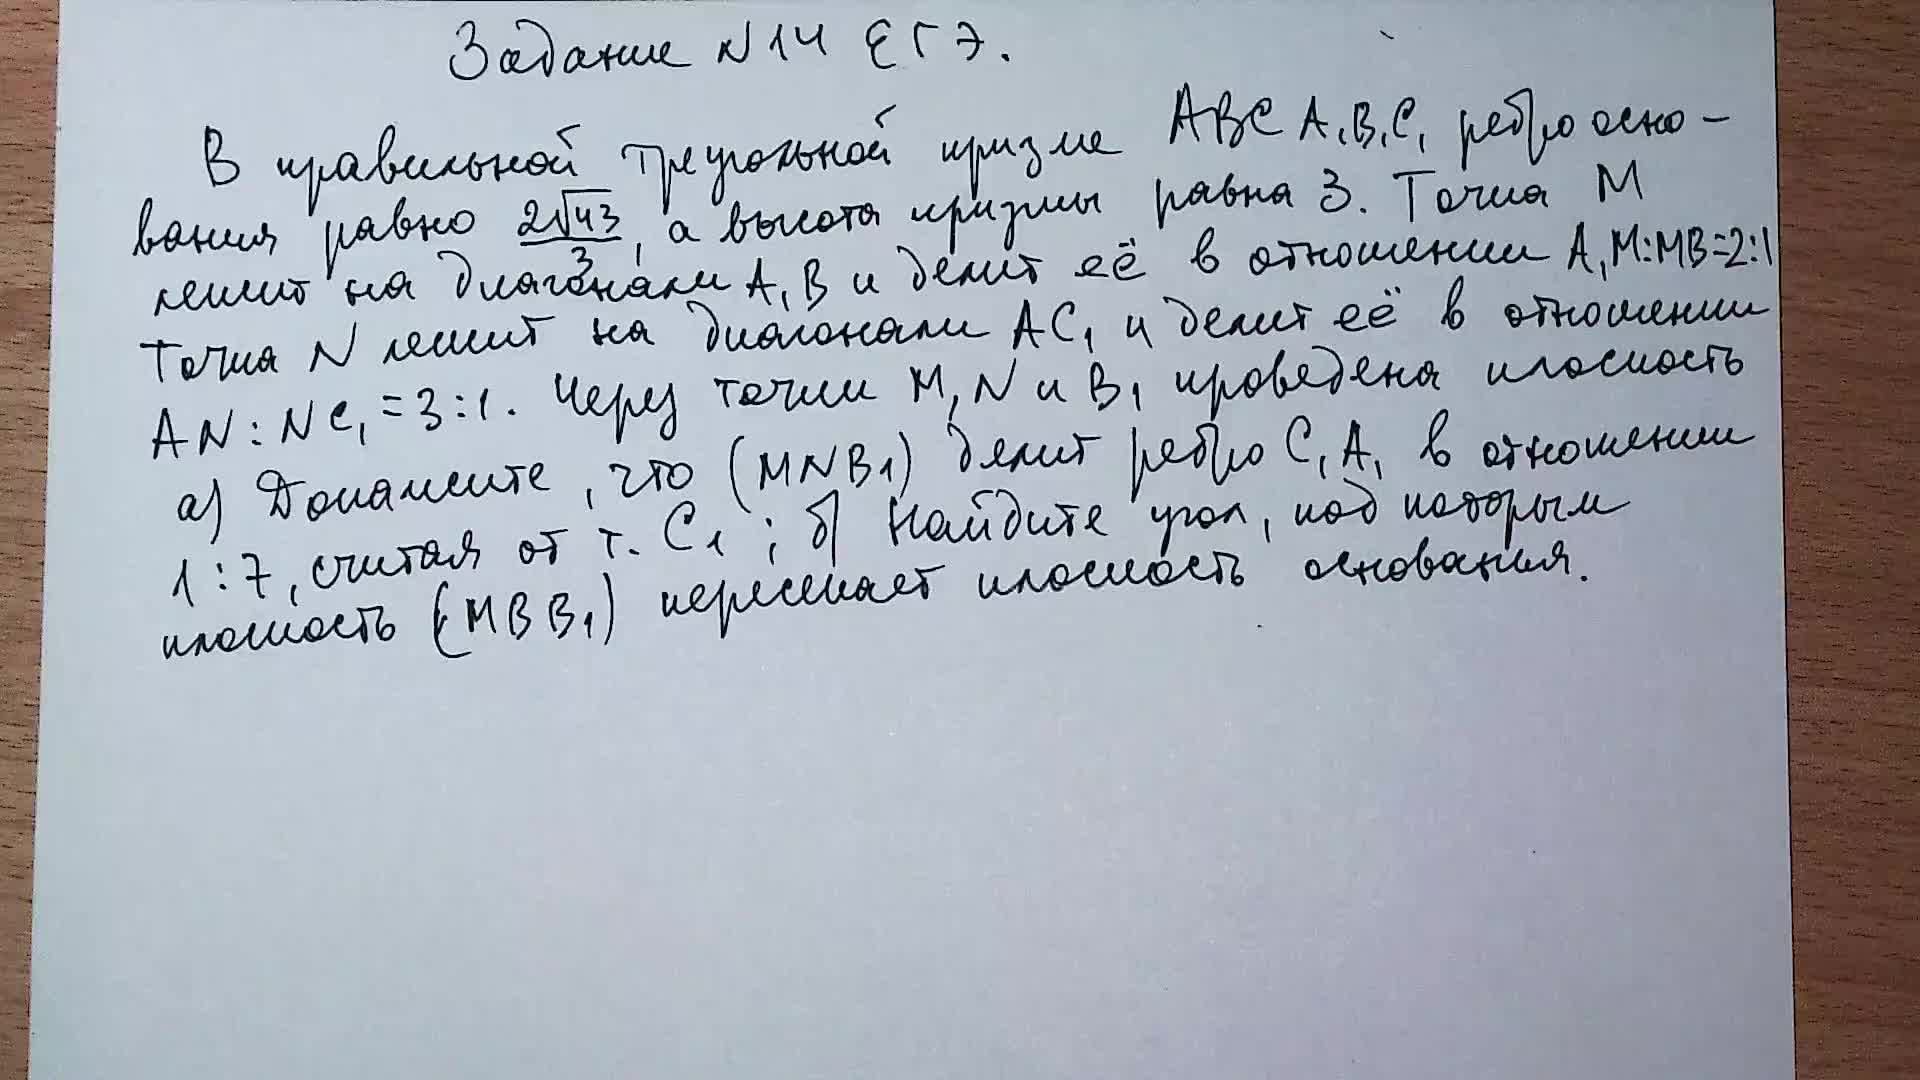 Задание N14 ЕГЭ.
В правильной треугольной призме ABCA₁B₁C₁ ребро осно-
вания равно 2√43/3, а высота призмы равна 3. Точка M
лежит на диагонали A₁B и делит её в отношении A₁M:MB=2:1
Точка N лежит на диагонали AC₁ и делит её в отношении
AN:NC₁=3:1. Через точки M, N и B₁ проведена плоскость
а) Докажите, что (MNB₁) делит ребро C₁A₁ в отношении
1:7, считая от т. C₁; б) Найдите угол, под которым
плоскость (MBB₁) пересекает плоскость основания.